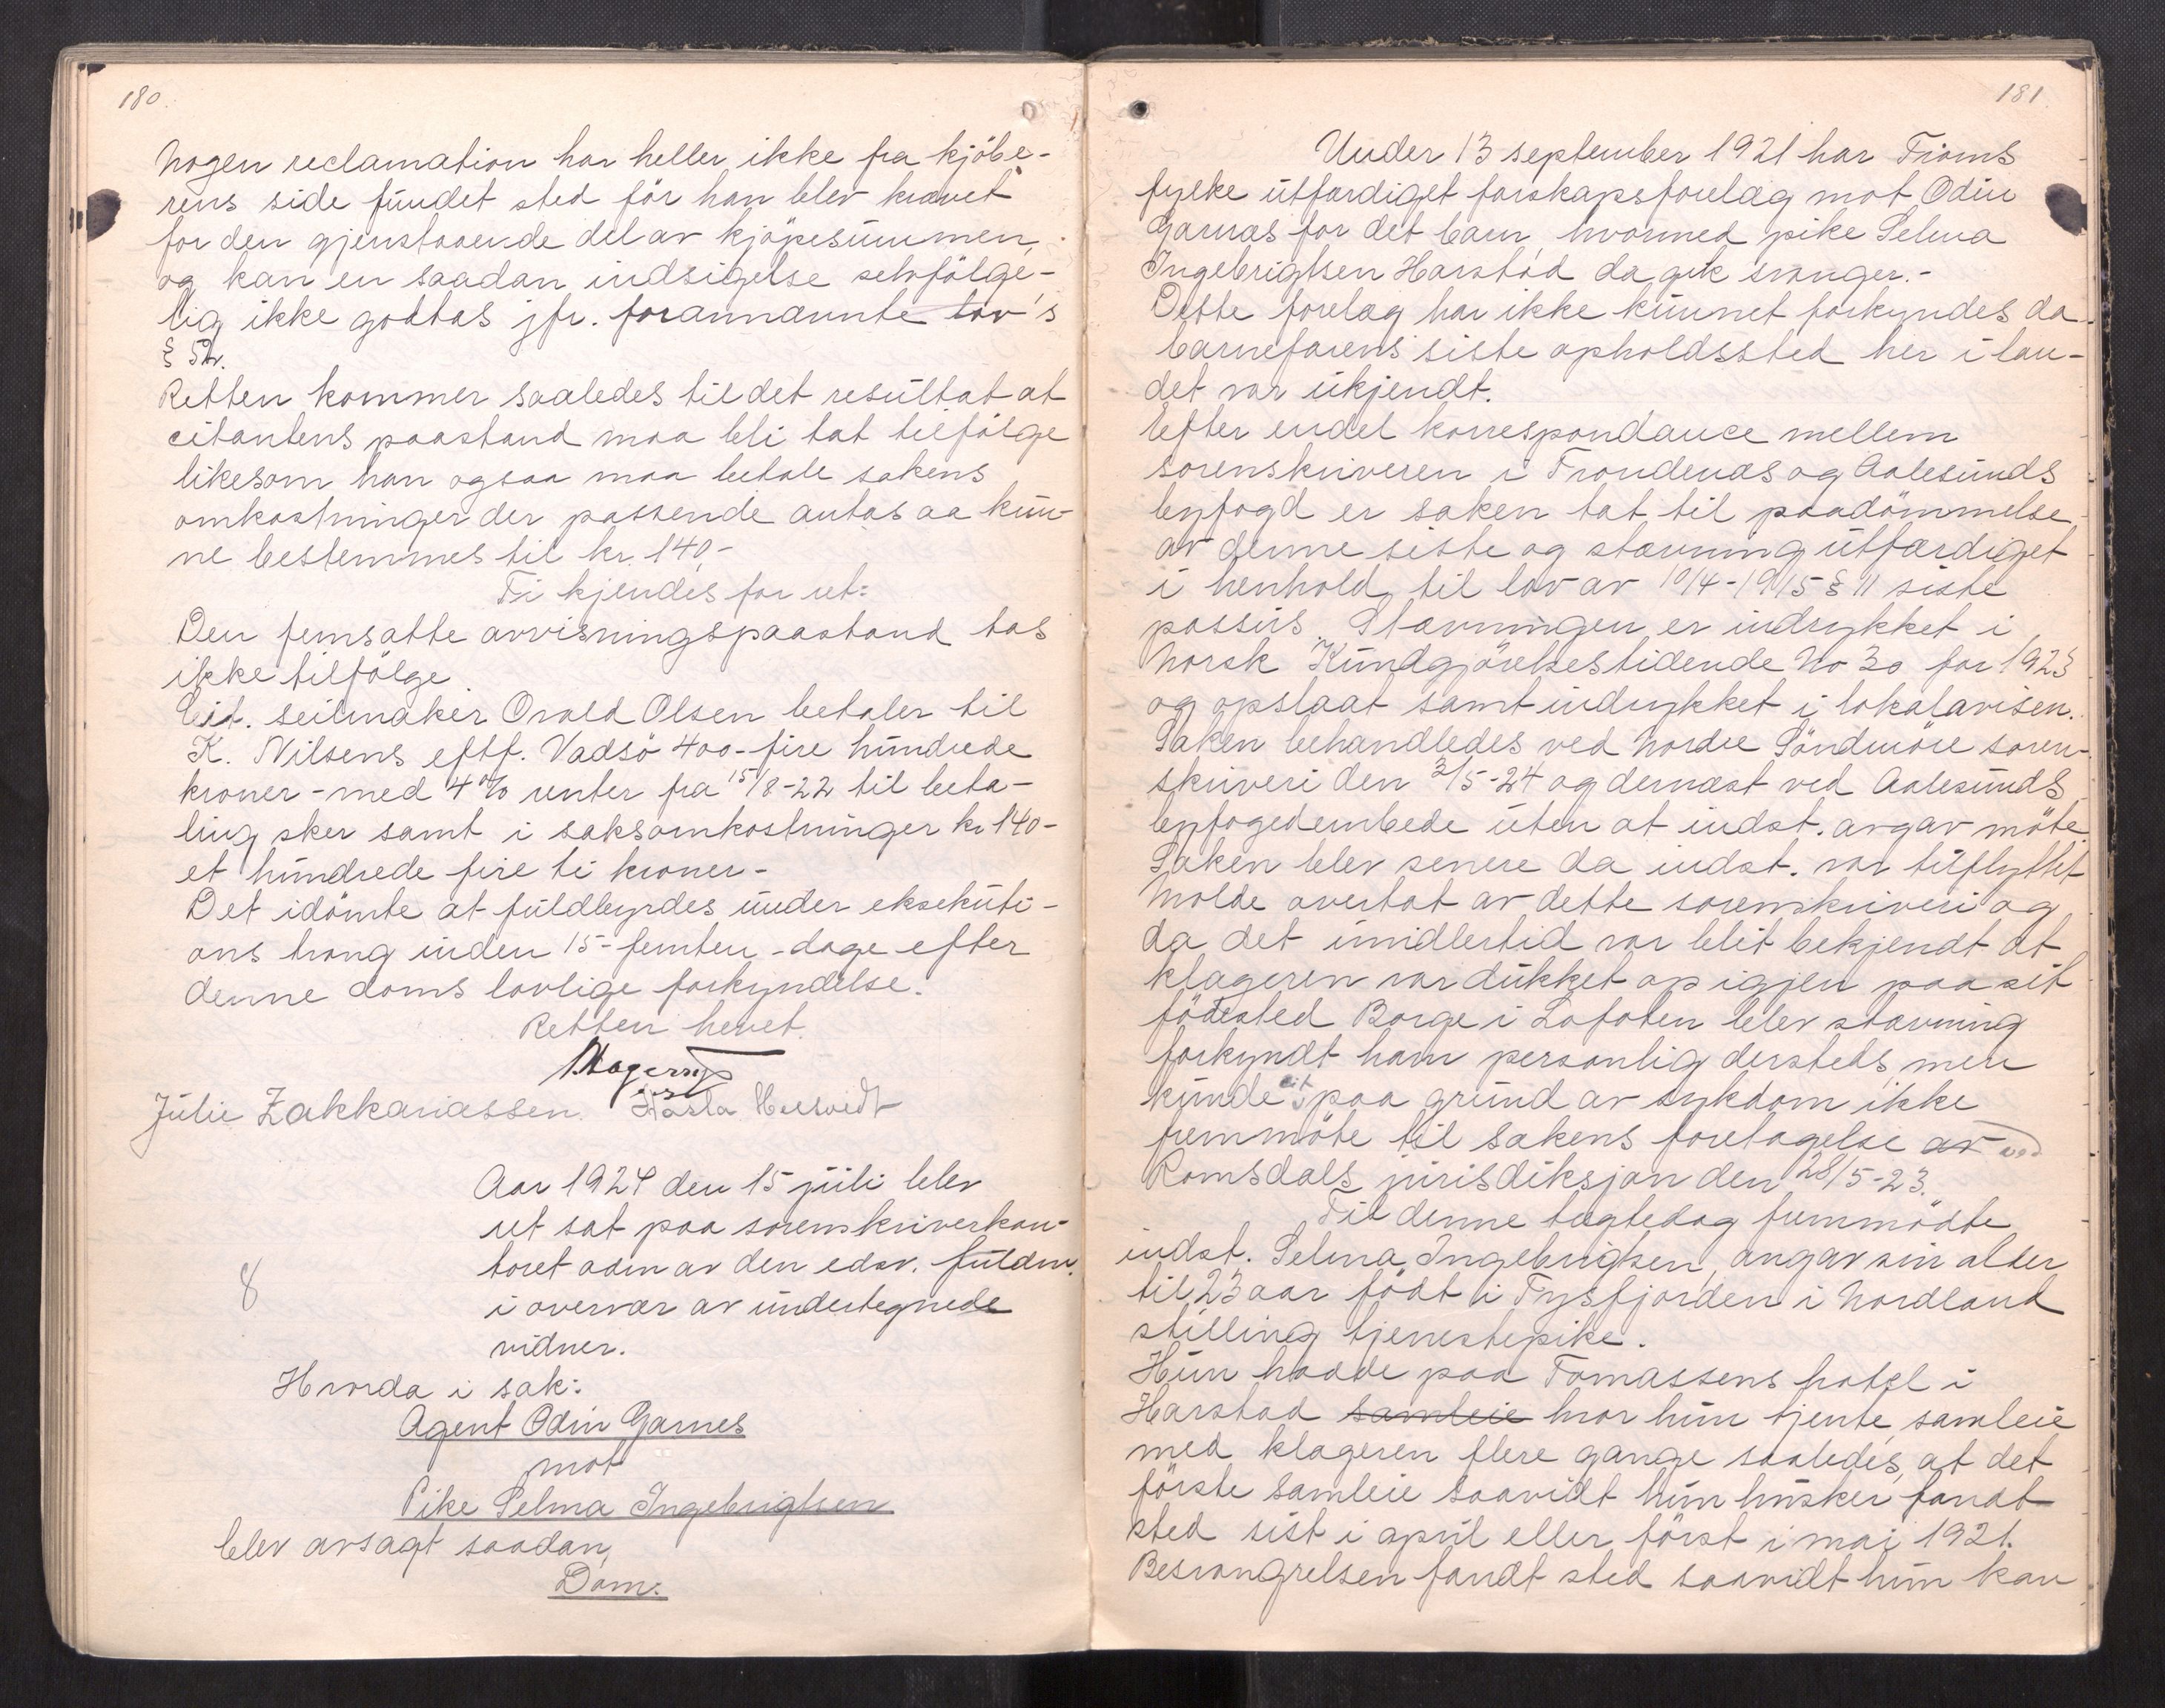 180.
Nogen reclamation har heller ikke fra kjöbe-
rens side fundet sted för han blev krævet
for den gjenstaaende del av kjöpesummen,
og kan en saadan indsigelse selvfölge-
lig ikke godtas jfr. forannævnte lov's
§ 52.
Retten kommer saaledes til det resultat at
citantens paastand maa bli tat tilfölge
likesom han ogsaa maa betale sakens
omkostninger der passende antas aa kun-
ne bestemmes til kr. 140,-
Ti kjendes for ret:
Den fremsatte avvisningspaastand tas
ikke tilfölge.
Cit. seilmaker Osvald Olsen betaler til
K. Nilsens eftf. Vadsö 400 - fire hundrede
kroner - med 4% renter fra 15/8-22 til beta-
ling sker samt i saksomkostninger kr 140-
et hundrede fire ti kroner -
Det idömte at fuldbyrdes under eksekuti-
ons tvang inden 15 - femten - dage efter
denne doms lovlige forkyndelse.
Retten hevet.
Julie Zakkariassen.
Aar 1924 den 15 juli blev
ret sat paa sorenskriverkon-
toret adm av den edsv. fuldm.
i overvær av undertegnede
vidner.
8
Hvorda i sak:
Agent Odin Garnes
mot
Pike Selma Ingebrigtsen
blev avsagt saadan
Dom:
181.
Under 13 september 1921 har Troms
fylke utfærdiget farskapsforelæg mot Odin
Garnæs for det barn, hvormed pike Selma
Ingebrigtsen Harstad da gik svanger.-
Dette forelæg har ikke kunnet forkyndes da
barnefarens siste opholdssted her i lan-
det var ukjendt.
Efter endel korrespondance mellem
sorenskriveren i Trondenæs og Aalesunds
byfogd er saken tat til paadömmelse
av denne siste og stævning utfærdiget
i henhold til lov av 10/4-1915 § 11 siste
passus. Stævningen er indrykket i
Norsk Kundgjörelsestidende No 30 for 1923
og opslaat samt indrykket i lokalavisen.
Saken behandledes ved Nordre Söndmöre soren-
skriveri den 3/5-24 og dernæst ved Aalesunds
byfogedembede uten at indst. avgav möte.
Saken blev senere da indst. var tilflyttet
Molde overtat av dette sorenskriveri og
da det imidlertid var blit bekjendt at
klageren var dukket op igjen paa sit
födested Borge i Lofoten blev stævning
forkyndt ham personlig dersteds, men
kunde cit paa grund av sykdom ikke
fremmöte til sakens foretagelse av ved
Romsdals jurisdiksjon den 28/5-23.
Til denne tægtedag fremmödte
indst. Selma Ingebrigtsen, angav sin alder
til 23 aar födt i Tysfjorden i Nordland
stilling tjenestepike.
Hun hadde paa Tomassens hotel i
Harstad samleie hvor hun tjente, samleie
med klageren flere gange saaledes, at det
förste samleie saavidt hun husker fandt
sted sist i april eller först i mai 1921.
Besvangrelsen fandt sted saavidt hun kan